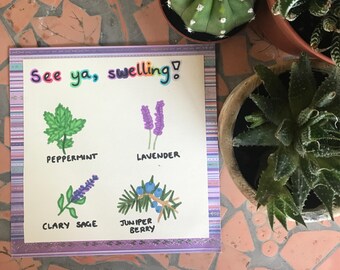 See ya, swelling!
PEPPERMINT
LAVENDER
CLARY SAGE
JUNIPER
BERRY